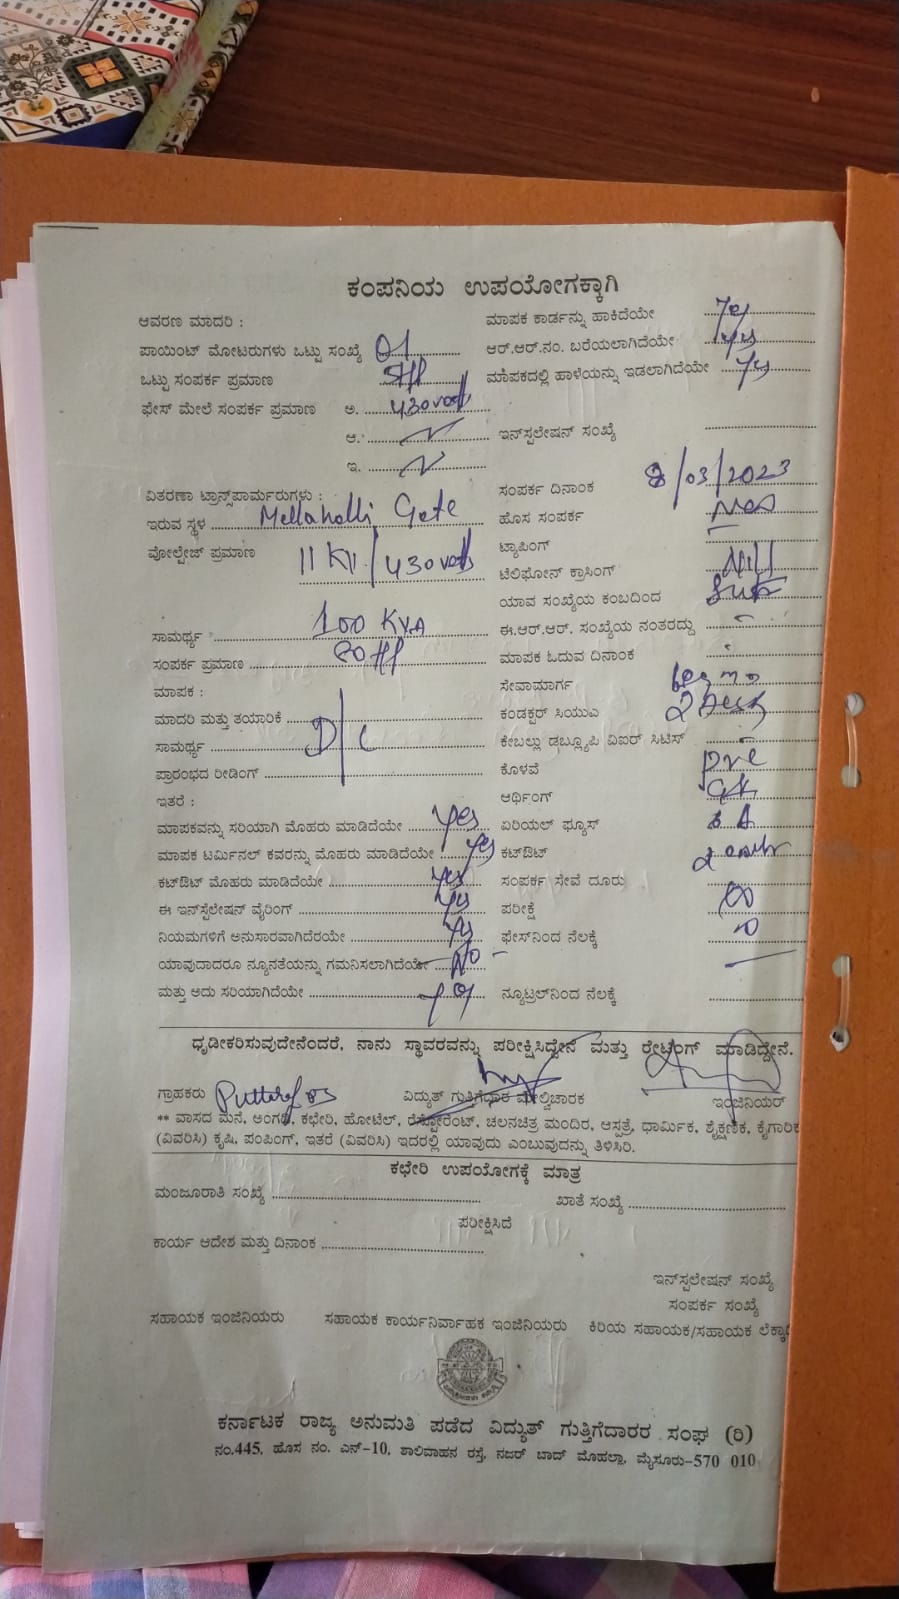 ಕಂಪನಿಯ ಉಪಯೋಗಕ್ಕಾಗಿ
ಆವರಣ ಮಾದರಿ :
ಮಾಪಕ ಕಾರ್ಡನ್ನು ಹಾಕಿದೆಯೇ
ಪಾಯಿಂಟ್ ಮೋಟರುಗಳು ಒಟ್ಟು ಸಂಖ್ಯೆ 01
ಆರ್.ಆರ್.ನಂ. ಬರೆಯಲಾಗಿದೆಯೇ yes
ಒಟ್ಟು ಸಂಪರ್ಕ ಪ್ರಮಾಣ 5HP
ಮಾಪಕದಲ್ಲಿ ಹಾಳೆಯನ್ನು ಇಡಲಾಗಿದೆಯೇ yes
ಫೇಸ್ ಮೇಲೆ ಸಂಪರ್ಕ ಪ್ರಮಾಣ ಅ. 430 volt
ಆ.
ಇನ್‌ಸ್ಪಲೇಷನ್ ಸಂಖ್ಯೆ
ಇ.
ವಿತರಣಾ ಟ್ರಾನ್ಸ್‌ಪಾರ್ಮರುಗಳು :
ಸಂಪರ್ಕ ದಿನಾಂಕ 8/03/2023
ಇರುವ ಸ್ಥಳ Mellahalli Gate
ಹೊಸ ಸಂಪರ್ಕ
ವೋಲ್ಟೇಜ್ ಪ್ರಮಾಣ 11 KV/430 volt
ಟ್ಯಾಪಿಂಗ್
ಟೆಲಿಫೋನ್ ಕ್ರಾಸಿಂಗ್ Nill
ಯಾವ ಸಂಖ್ಯೆಯ ಕಂಬದಿಂದ
ಸಾಮರ್ಥ್ಯ 100 KVA
ಈ.ಆರ್.ಆರ್. ಸಂಖ್ಯೆಯ ನಂತರದ್ದು
ಸಂಪರ್ಕ ಪ್ರಮಾಣ
ಮಾಪಕ ಓದುವ ದಿನಾಂಕ
ಮಾಪಕ :
ಸೇವಾಮಾರ್ಗ
ಮಾದರಿ ಮತ್ತು ತಯಾರಿಕೆ
ಕಂಡಕ್ಟರ್ ಸಿಯುಎ
ಸಾಮರ್ಥ್ಯ D/C
ಕೇಬಲ್ಲು ಡಬ್ಲ್ಯೂಪಿ ವಿಐರ್ ಸಿಟಿಸ್
ಪ್ರಾರಂಭದ ರೀಡಿಂಗ್
ಕೊಳವೆ
ಇತರೆ :
ಆರ್ಥಿಂಗ್
ಮಾಪಕವನ್ನು ಸರಿಯಾಗಿ ಮೊಹರು ಮಾಡಿದೆಯೇ yes
ಏರಿಯಲ್ ಫ್ಯೂಸ್
ಮಾಪಕ ಟರ್ಮಿನಲ್ ಕವರನ್ನು ಮೊಹರು ಮಾಡಿದೆಯೇ yes
ಕಟ್‌ಔಟ್
ಕಟ್‌ಔಟ್ ಮೊಹರು ಮಾಡಿದೆಯೇ yes
ಸಂಪರ್ಕ ಸೇವೆ ದೂರು
ಈ ಇನ್‌ಸ್ಪೆಲೇಷನ್ ವೈರಿಂಗ್ yes
ಪರೀಕ್ಷೆ
ನಿಯಮಗಳಿಗೆ ಅನುಸಾರವಾಗಿದೆರಯೇ yes
ಫೇಸ್‌ನಿಂದ ನೆಲಕ್ಕೆ
ಯಾವುದಾದರೂ ನ್ಯೂನತೆಯನ್ನು ಗಮನಿಸಲಾಗಿದೆಯೇ No
ಮತ್ತು ಅದು ಸರಿಯಾಗಿದೆಯೇ
ನ್ಯೂಟ್ರಲ್‌ನಿಂದ ನೆಲಕ್ಕೆ
ಧೃಡೀಕರಿಸುವುದೇನೆಂದರೆ, ನಾನು ಸ್ಥಾವರವನ್ನು ಪರೀಕ್ಷಿಸಿದ್ದೇನೆ ಮತ್ತು ರೇಟಿಂಗ್ ಮಾಡಿದ್ದೇನೆ.
ಗ್ರಾಹಕರು
ವಿದ್ಯುತ್ ಗುತ್ತಿಗೆದಾರ ಮೇಲ್ವಿಚಾರಕ
ಇಂಜಿನಿಯರ್
** ವಾಸದ ಮನೆ, ಅಂಗಡಿ, ಕಛೇರಿ, ಹೋಟೆಲ್, ರೆಸ್ಟೋರೆಂಟ್, ಚಲನಚಿತ್ರ ಮಂದಿರ, ಆಸ್ಪತ್ರೆ, ಧಾರ್ಮಿಕ, ಶೈಕ್ಷಣಿಕ, ಕೈಗಾರಿಕ
(ವಿವರಿಸಿ) ಕೃಷಿ, ಪಂಪಿಂಗ್, ಇತರೆ (ವಿವರಿಸಿ) ಇದರಲ್ಲಿ ಯಾವುದು ಎಂಬುವುದನ್ನು ತಿಳಿಸಿರಿ.
ಕಛೇರಿ ಉಪಯೋಗಕ್ಕೆ ಮಾತ್ರ
ಮಂಜೂರಾತಿ ಸಂಖ್ಯೆ
ಖಾತೆ ಸಂಖ್ಯೆ
ಪರೀಕ್ಷಿಸಿದೆ
ಕಾರ್ಯ ಆದೇಶ ಮತ್ತು ದಿನಾಂಕ
ಇನ್‌ಸ್ಪಲೇಷನ್ ಸಂಖ್ಯೆ
ಸಂಪರ್ಕ ಸಂಖ್ಯೆ
ಸಹಾಯಕ ಇಂಜಿನಿಯರು ಸಹಾಯಕ ಕಾರ್ಯನಿರ್ವಾಹಕ ಇಂಜಿನಿಯರು ಕಿರಿಯ ಸಹಾಯಕ/ಸಹಾಯಕ
ಕರ್ನಾಟಕ ರಾಜ್ಯ ಅನುಮತಿ ಪಡೆದ ವಿದ್ಯುತ್ ಗುತ್ತಿಗೆದಾರರ ಸಂಘ (ರಿ)
ನಂ.445, ಹೊಸ ನಂ. ಎನ್-10, ಶಾಲಿವಾಹನ ರಸ್ತೆ, ನಜರ್ ಬಾದ್ ಮೊಹಲ್ಲಾ, ಮೈಸೂರು-570 010